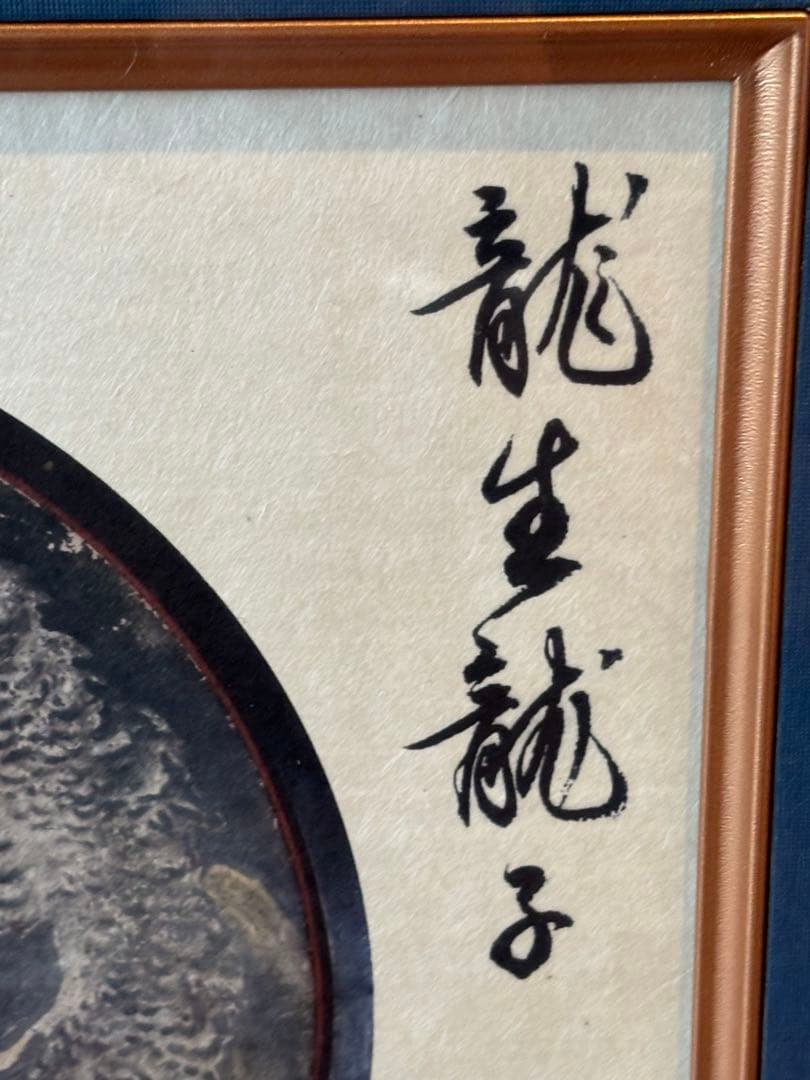 龍生龍子